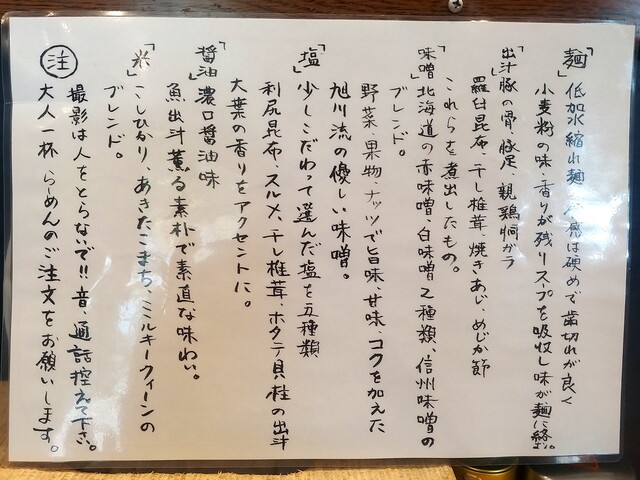 「麺」低加水縮れ麺 食感は硬めで歯切れが良く
小麦粉の味、香りが残りスープを吸収し味が麺に絡む。
「出汁」豚の骨、豚足、親鶏胴ガラ
羅臼昆布、干し椎茸、焼きあじ、めじか節
これらを煮出したもの。
「味噌」北海道の赤味噌、白味噌2種類、信州味噌の
ブレンド。
野菜、果物、ナッツで旨味、甘味、コクを加えた
旭川流の優しい味噌。
「塩」少しこだわって選んだ塩を五種類
利尻昆布、スルメ、干し椎茸、ホタテ貝柱の出汁
大葉の香りをアクセントに。
「醤油」濃口醤油味
魚出汁薫る素朴で素直な味わい。
「米」こしひかり、あきたこまち、ミルキークィーンの
ブレンド。
注 撮影は人をとらないで!!音、通話控えて下さい。
大人一杯らーめんのご注文をお願いします。